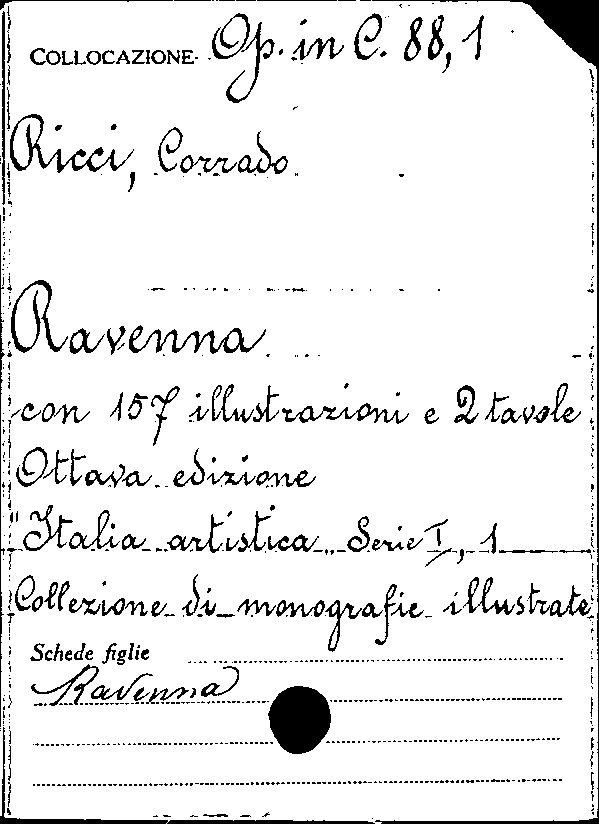 COLLOCAZIONE Op. in C. 88,1
Ricci, Corrado
Ravenna
con 157 illustrazioni e 2 tavole
Ottava edizione
"Italia artistica„ Serie I, 1
Collezione di monografie illustrate
Schede figlie
Ravenna